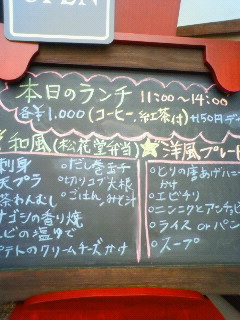 OPEN
本日のランチ 11:00〜14:00
各¥1,000(コーヒー、紅茶付)+150円デ
和風(松花堂弁当)
刺身 ○だし巻玉子
天プラ ○切りコブ大根
茶わんむし ○ごはん、みそ汁
ナゴシの香り焼
ビの塩ゆで
ポテトのクリームチーズかけ
★洋風プレート
○とりの唐あげハニー
○エビチリ
○ニンニクとアンチョビ
○ライス or パン
○スープ